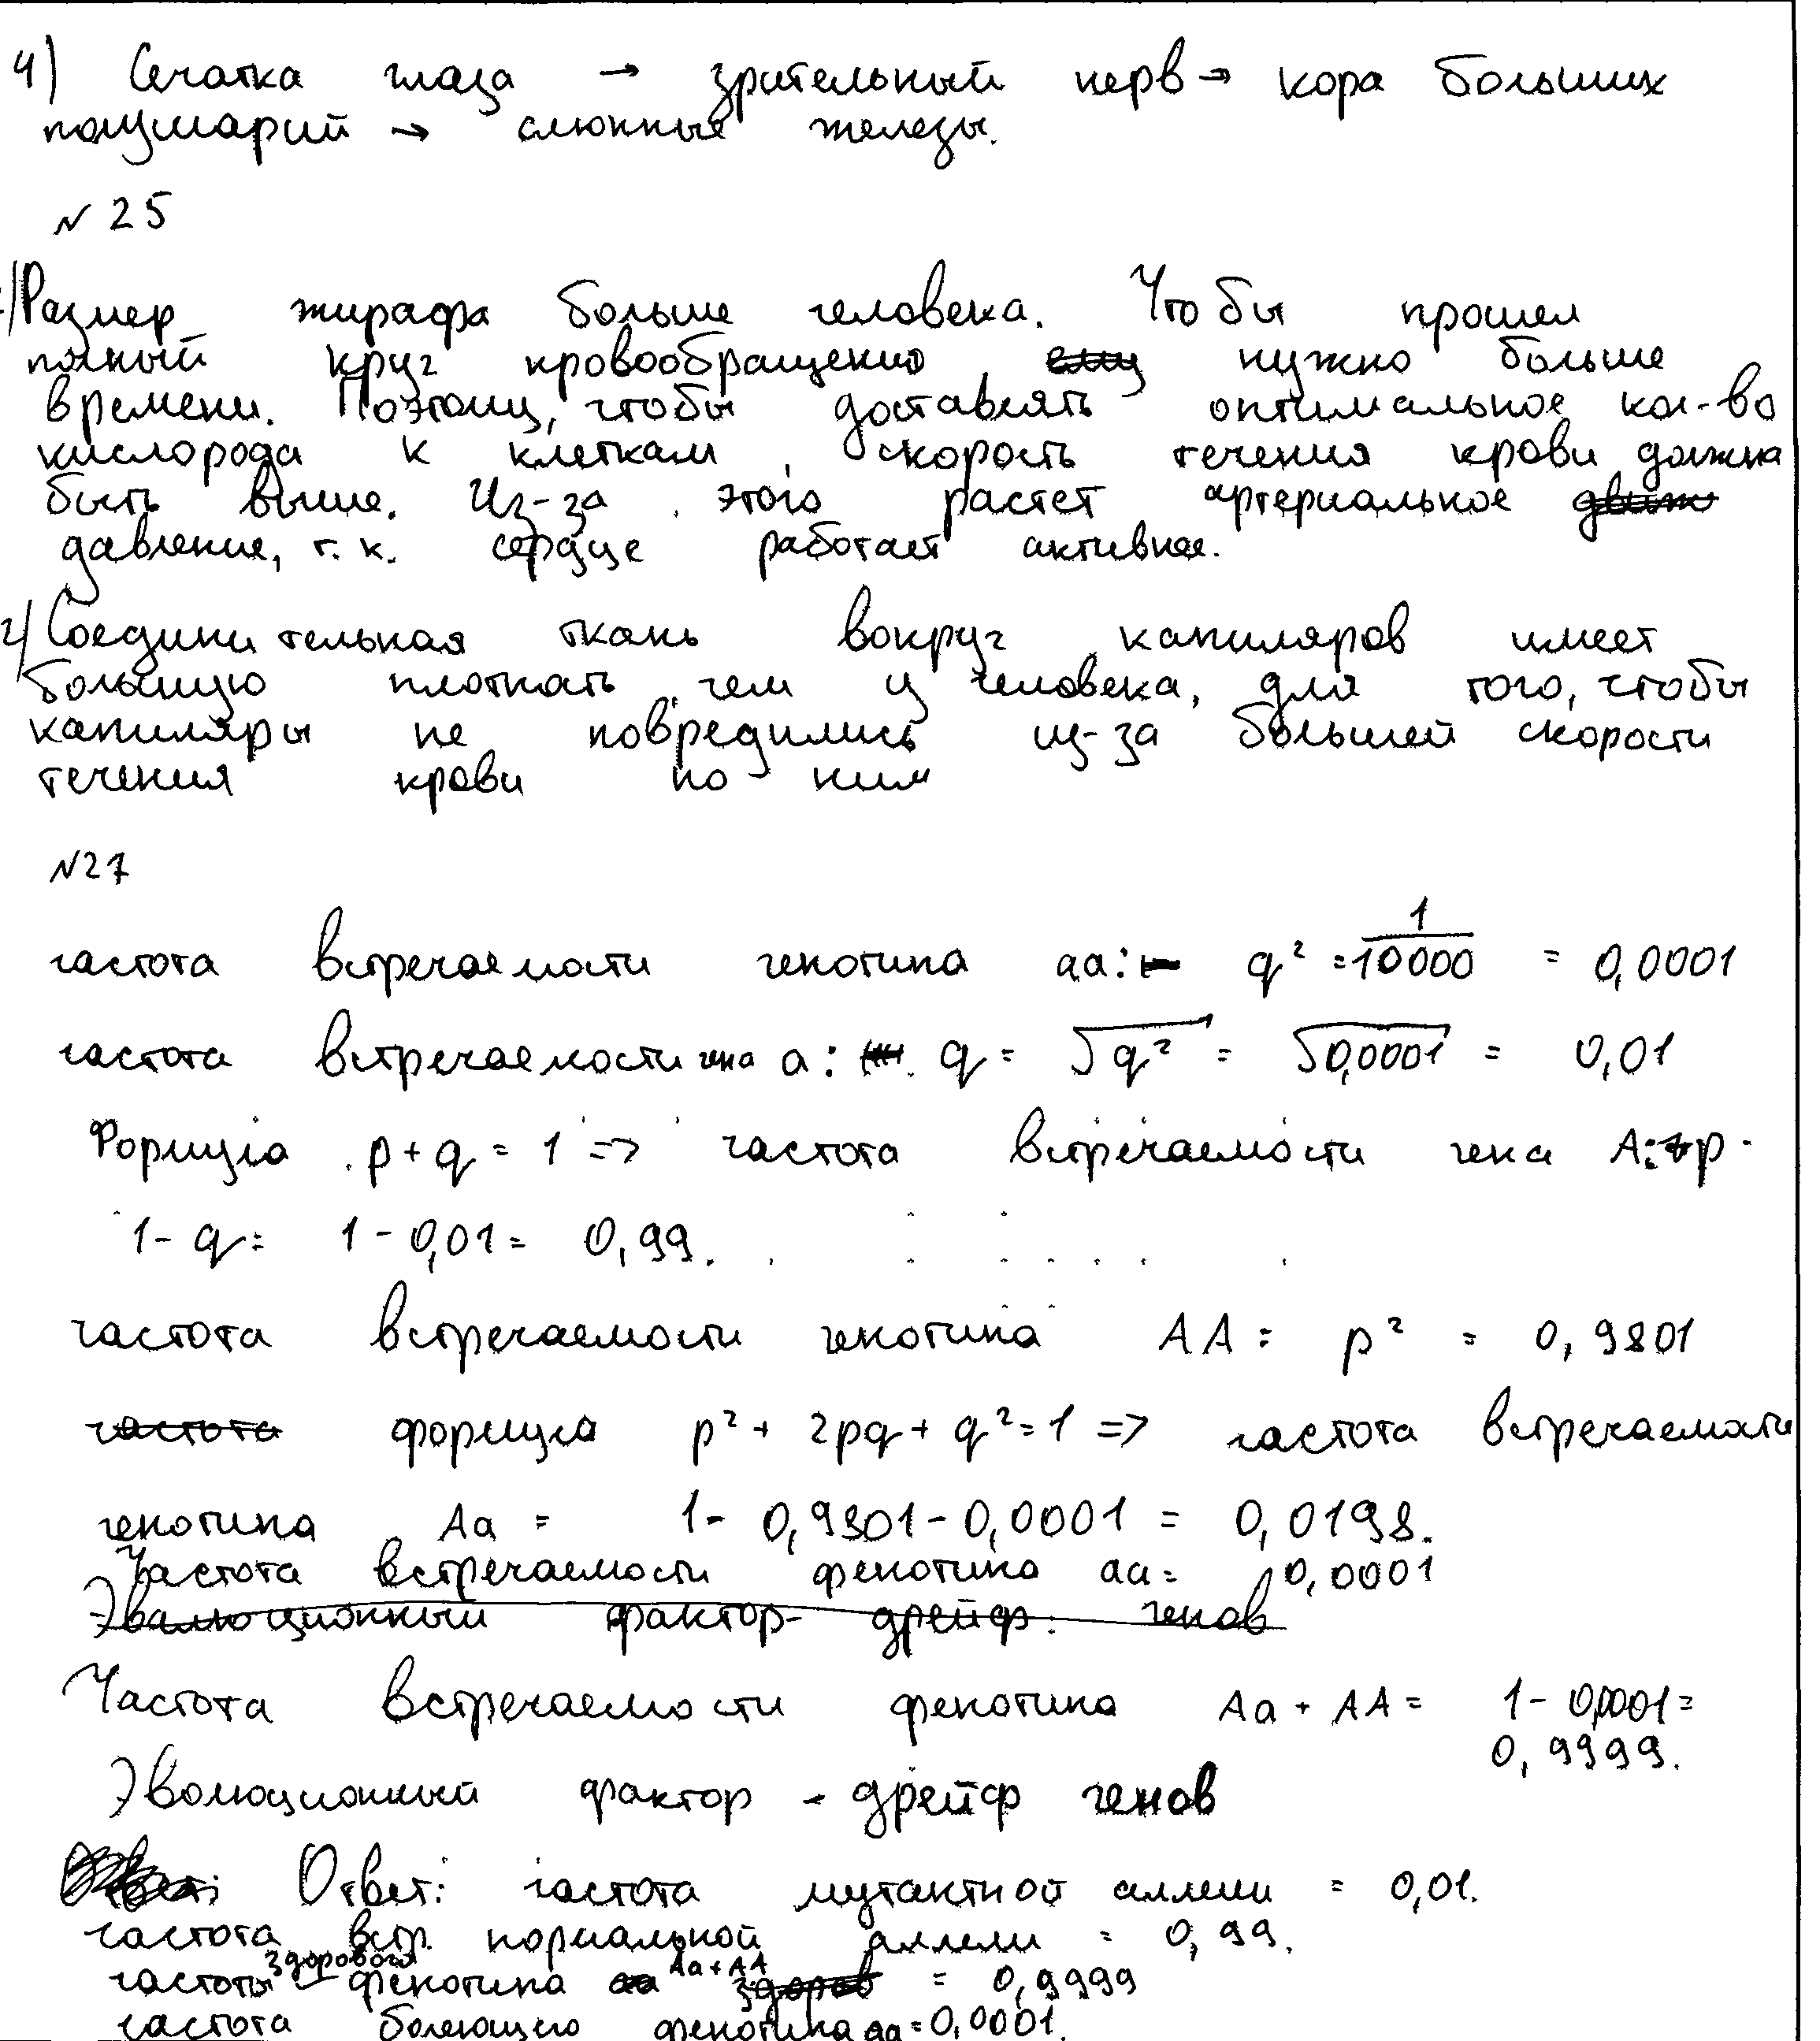 4) Сечатка глаза → зрительный нерв → кора больших
полушарий → слюнные железы.
N 25
1) Размер жирафа больше человека. Что бы прошел
полный круг кровообращению нужно больше
времени. Поэтому, чтобы доставлять оптимальное кол-во
кислорода к клеткам, скорость течения крови должна
быть выше. Из-за этого растет артериальное
давление, т.к. сердце работает активнее.
2) Соединительная ткань вокруг капиляров имеет
большую плотность, чем у человека, для того, чтобы
капиляры не повредились из-за большей скорости
течения крови по ним
N27
частота встречаемости генотипа aa: q² = 1/10000 = 0,0001
частота встречаемости гена a: q = √q² = √0,0001 = 0,01
Формула p+q = 1 => частота встречаемости гена A: p =
1 - q = 1 - 0,01 = 0,99.
частота встречаемости генотипа AA = p² = 0,9801
частота формула p² + 2pq + q² = 1 => частота встречаемости
генотипа Aa = 1 - 0,9801 - 0,0001 = 0,0198.
Частота встречаемости фенотипа aa = 0,0001
Эвалюционный фактор - дрейф генов
Частота встречаемости фенотипа Aa + AA = 1 - 0,0001 =
0,9999.
Эволюционный фактор - дрейф генов
Ответ: Ответ: частота мутактной аллели = 0,01.
частота встр. нормальной аллели = 0,99.
частоты здорового фенотипа aa Aa+AA здоров = 0,9999
частота болеющего фенотипа aa = 0,0001.